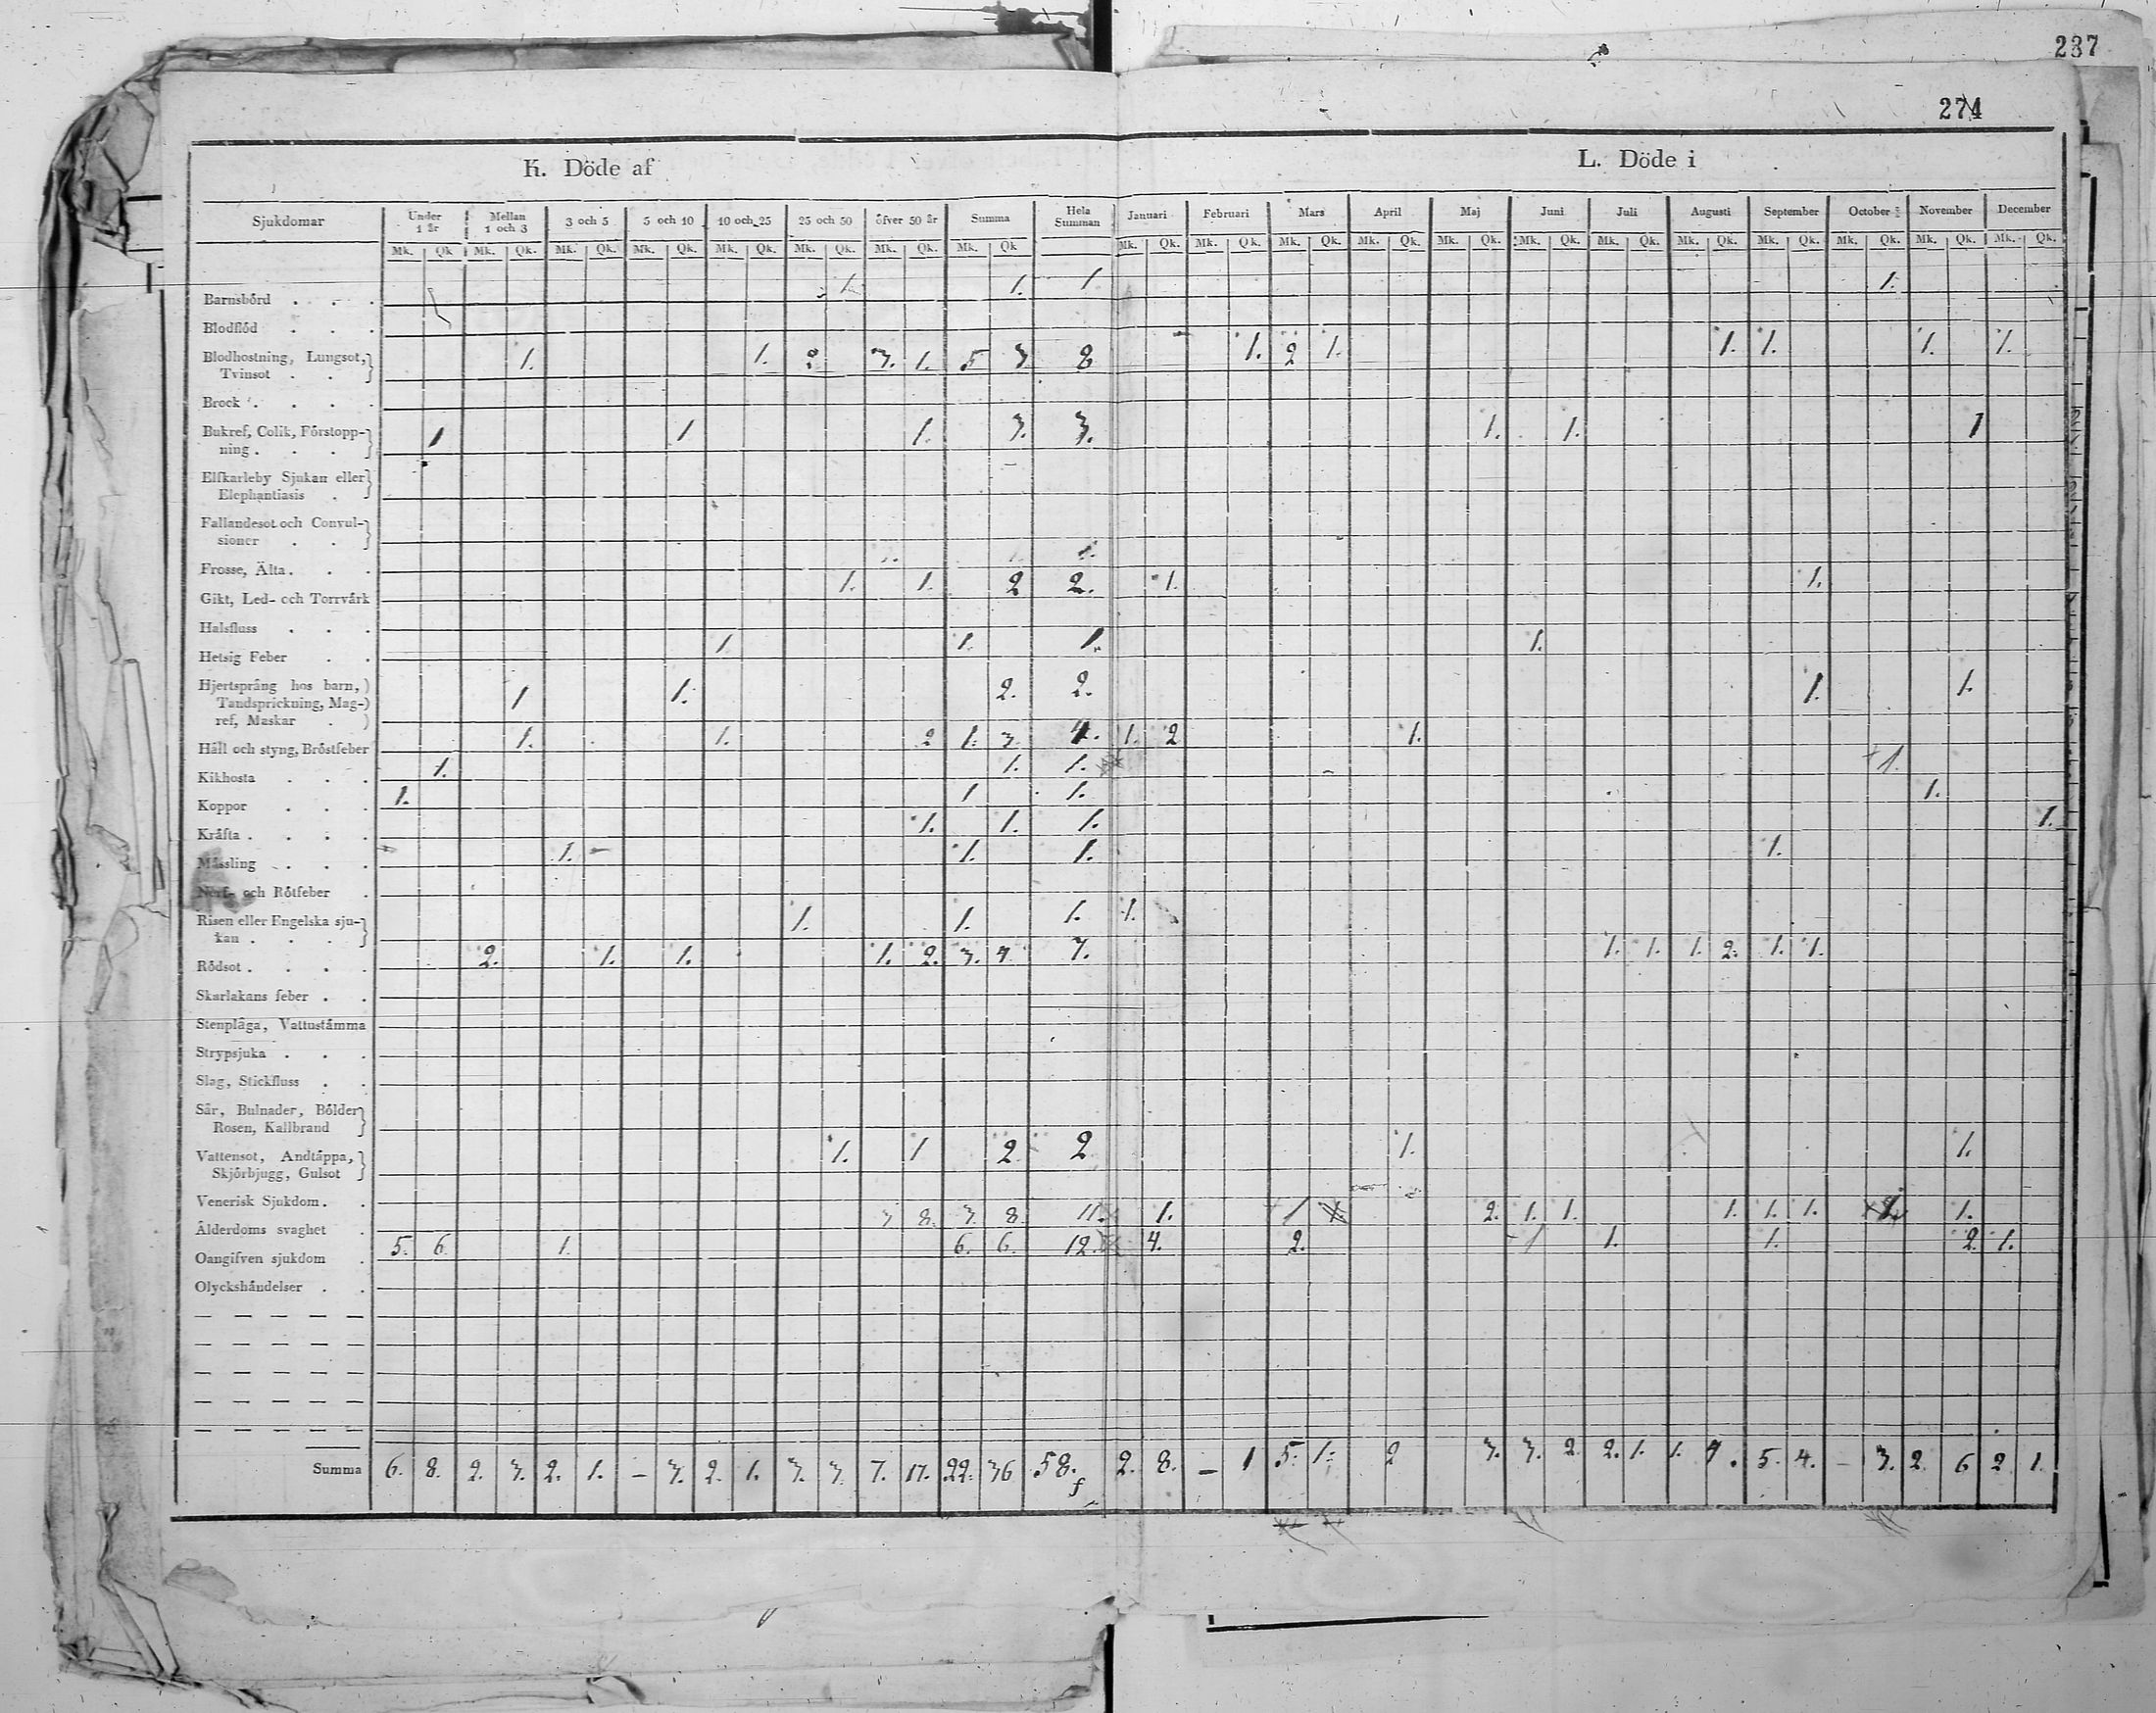 237
274
K. Döde af
L. Döde i
Sjukdomar | Under 1 år | Mellan 1 och 3 | 3 och 5 | 5 och 10 | 10 och 25 | 25 och 50 | öfver 50 år | Summa | Hela Summan | Januari | Februari | Mars | April | Maj | Juni | Juli | Augusti | September | October | November | December
Mk. Qk Mk. Qk. Mk. Qk. Mk. Qk. Mk. Qk. Mk. Qk. Mk. Qk. Mk. Qk Mk. Qk. Mk. Qk. Mk. Qk. Mk. Qk. Mk. Qk. Mk. Qk. Mk. Qk. Mk. Qk. Mk. Qk. Mk. Qk. Mk. Qk. Mk. Qk.
Barnsbörd . . . 1. 1. 1 1.
Blodflöd . . .
Blodhostning, Lungsot, 1. 1. 2 3. 1. 5 3 8 1. 2 1. 1. 1. 1. 1.
Tvinsot . . .
Brock . . . .
Bukref, Colik, Förstopp- 1 1 1. 3. 3. 1. 1. 1
ning . . . .
Elfkarleby Sjukan eller
Elephantiasis .
Fallandesot och Convul-
sioner . .
Frosse, Älta . . .
Gikt, Led- och Torrvärk 1. 1. 2 2. 1. 1.
Halsfluss . . .
Hetsig Feber . . 1. 1. 1. 1.
Hjertsprång hos barn, 1 1. 2. 2. 1. 1.
Tandsprickning, Mag-
ref, Maskar .
Håll och styng, Bröstfeber 1. 1. 2 1. 3. 4. 1. 2 1.
Kikhosta . . . 1. 1. 1. 1.
Koppor . . . 1. 1 1. 1.
Kräfta . . . . 1. 1. 1. 1.
Mässling . . . 1. 1. 1. 1.
Nerf- och Rötfeber .
Risen eller Engelska sju- 1. 1. 1. 1.
kan . . . .
Rödsot . . . . 2. 1. 1. 1. 2. 3. 4 7. 1. 1. 1. 2. 1. 1.
Skarlakans feber . .
Stenplåga, Vattustämma
Strypsjuka . . .
Slag, Stickfluss . .
Sår, Bulnader, Bölder
Rosen, Kallbrand
Vattensot, Andtäppa, 1. 1 2 2 1. 1.
Skjörbjugg, Gulsot
Venerisk Sjukdom . .
Ålderdoms svaghet . 3 8. 3. 8. 11. 1. 1 2. 1. 1. 1. 1. 1. 1.
Oangifven sjukdom . 5. 6. 1. 6. 6. 12. 4. 2. 1 1. 1. 2. 1.
Olyckshändelser . .
Summa 6. 8. 2. 3. 2. 1. – 3. 2. 1. 3. 3. 7. 17. 22. 36 58. 2. 8. – 1 5. 1. 2 3. 3. 2 2. 1. 1. 4. 5. 4. – 3. 2. 6 2 1.